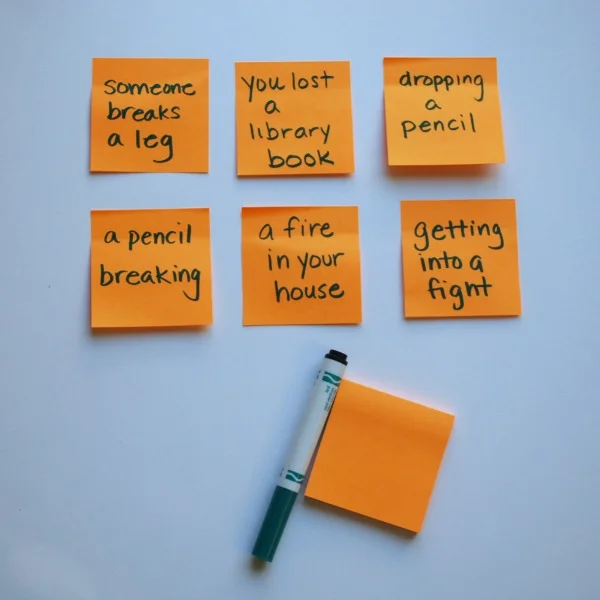 someone
breaks
a leg
you lost
a
library
book
dropping
a
pencil
a pencil
breaking
a fire
in your
house
getting
into a
fight